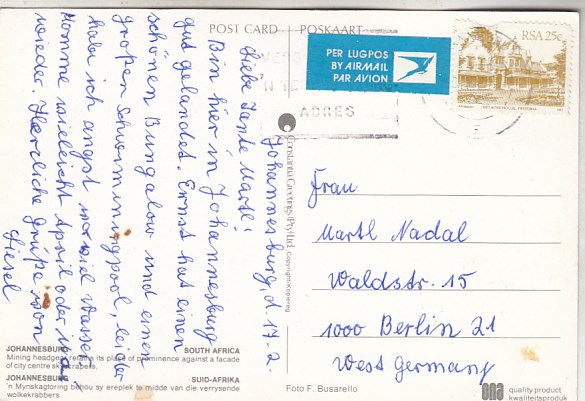 POST CARD | POSKAART
PER LUGPOS
BY AIRMAIL
PAR AVION
RSA 25c
ADRES
Johannesburg, d. 17.2.
Liebe Tante Martl!
Bin hier in Johannesburg
gut gelandet. Ernst hat einen
schönen Bungalow und einen
großen Schwimmingpool, leider
habe ich angst vor viel Wasser.
Komme vielleicht April oder
wieder. Herzliche Grüße von
Liesel
Frau
Martl Nadal
Waldstr. 15
1000 Berlin 21
West Germany
Constantia Greetings (Pty) Ltd.
JOHANNESBURG
SOUTH AFRICA
Mining headgear retains its place of prominence against a facade
of city centre skyscrapers.
JOHANNESBURG
SUID-AFRIKA
'n Mynskagtoring behou sy ereplek te midde van die verrysende
wolkekrabbers.
Foto F. Busarello
quality product
kwaliteitsproduk